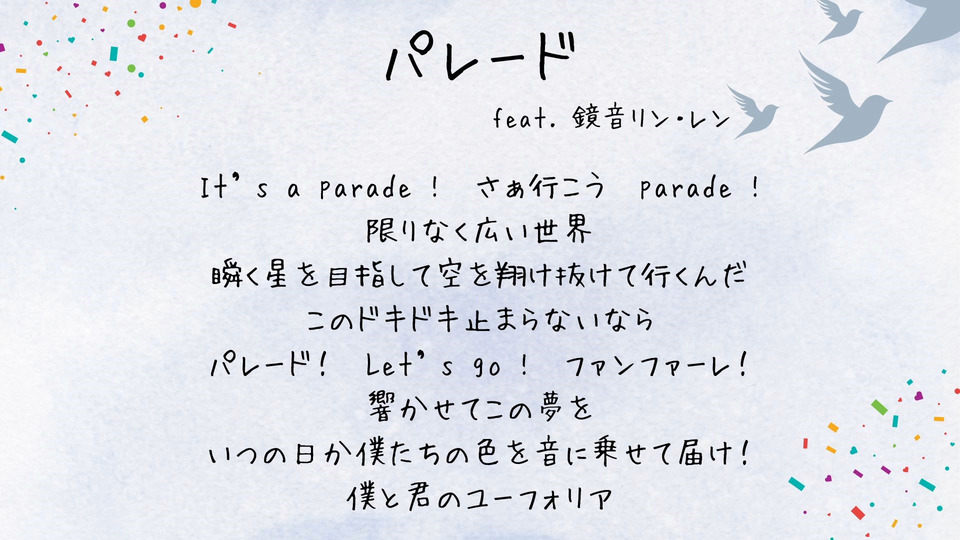 パレード
feat. 鏡音リン・レン
It's a parade！　さぁ行こう　parade！
限りなく広い世界
瞬く星を目指して空を翔け抜けて行くんだ
このドキドキ止まらないなら
パレード！　Let's go！　ファンファーレ！
響かせてこの夢を
いつの日か僕たちの色を音に乗せて届け！
僕と君のユーフォリア